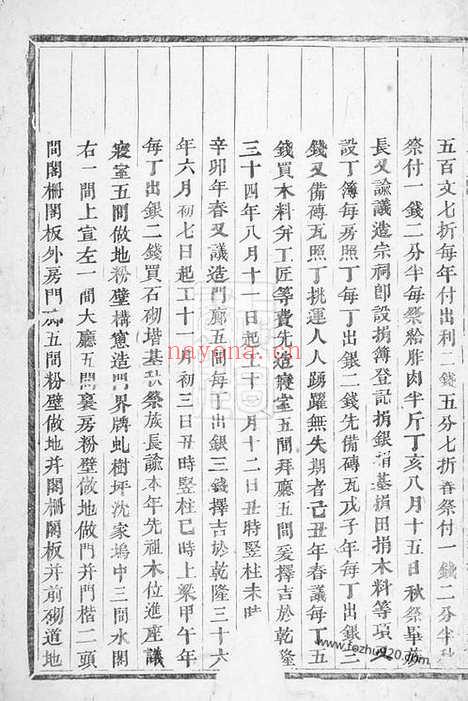 五百文七折每年付出利二錢五分七折春祭付一錢二分半秋
祭付一錢二分半每祭給胙肉半斤丁亥八月十五日秋祭畢族
長又諭議造宗祠即設捐簿登記捐銀捐基捐田捐木料等項又
設丁簿每房每丁出銀二錢先備磚瓦戊子年每丁出銀二
錢又備磚瓦照丁挑運人人踴躍無失期者己丑年春議每丁五
錢買木料弁工匠等費先造寢室五間拜廳五間爰擇吉於乾隆
三十四年八月十一日起工十一月十二日丑時竪柱未時
辛卯年春又議造門廊五間每丁出銀三錢擇吉於乾隆三十六
年六月初七日起工十一月初三日丑時竪柱巳時上梁甲午年
每丁出銀二錢買石砌堦基秋祭族長諭本年先祖木位進座議
寢室五間做地粉壁構窻造門界牌虬樹坪沈家塢中三間水閣
右一間上宣左一間大廳五間裏房粉壁做地做門并門楷二頭
間閣柵閣板外房門廊五間粉壁做地并閣柵閣板并前砌道地
nayona.cn
www.fozhu920.com